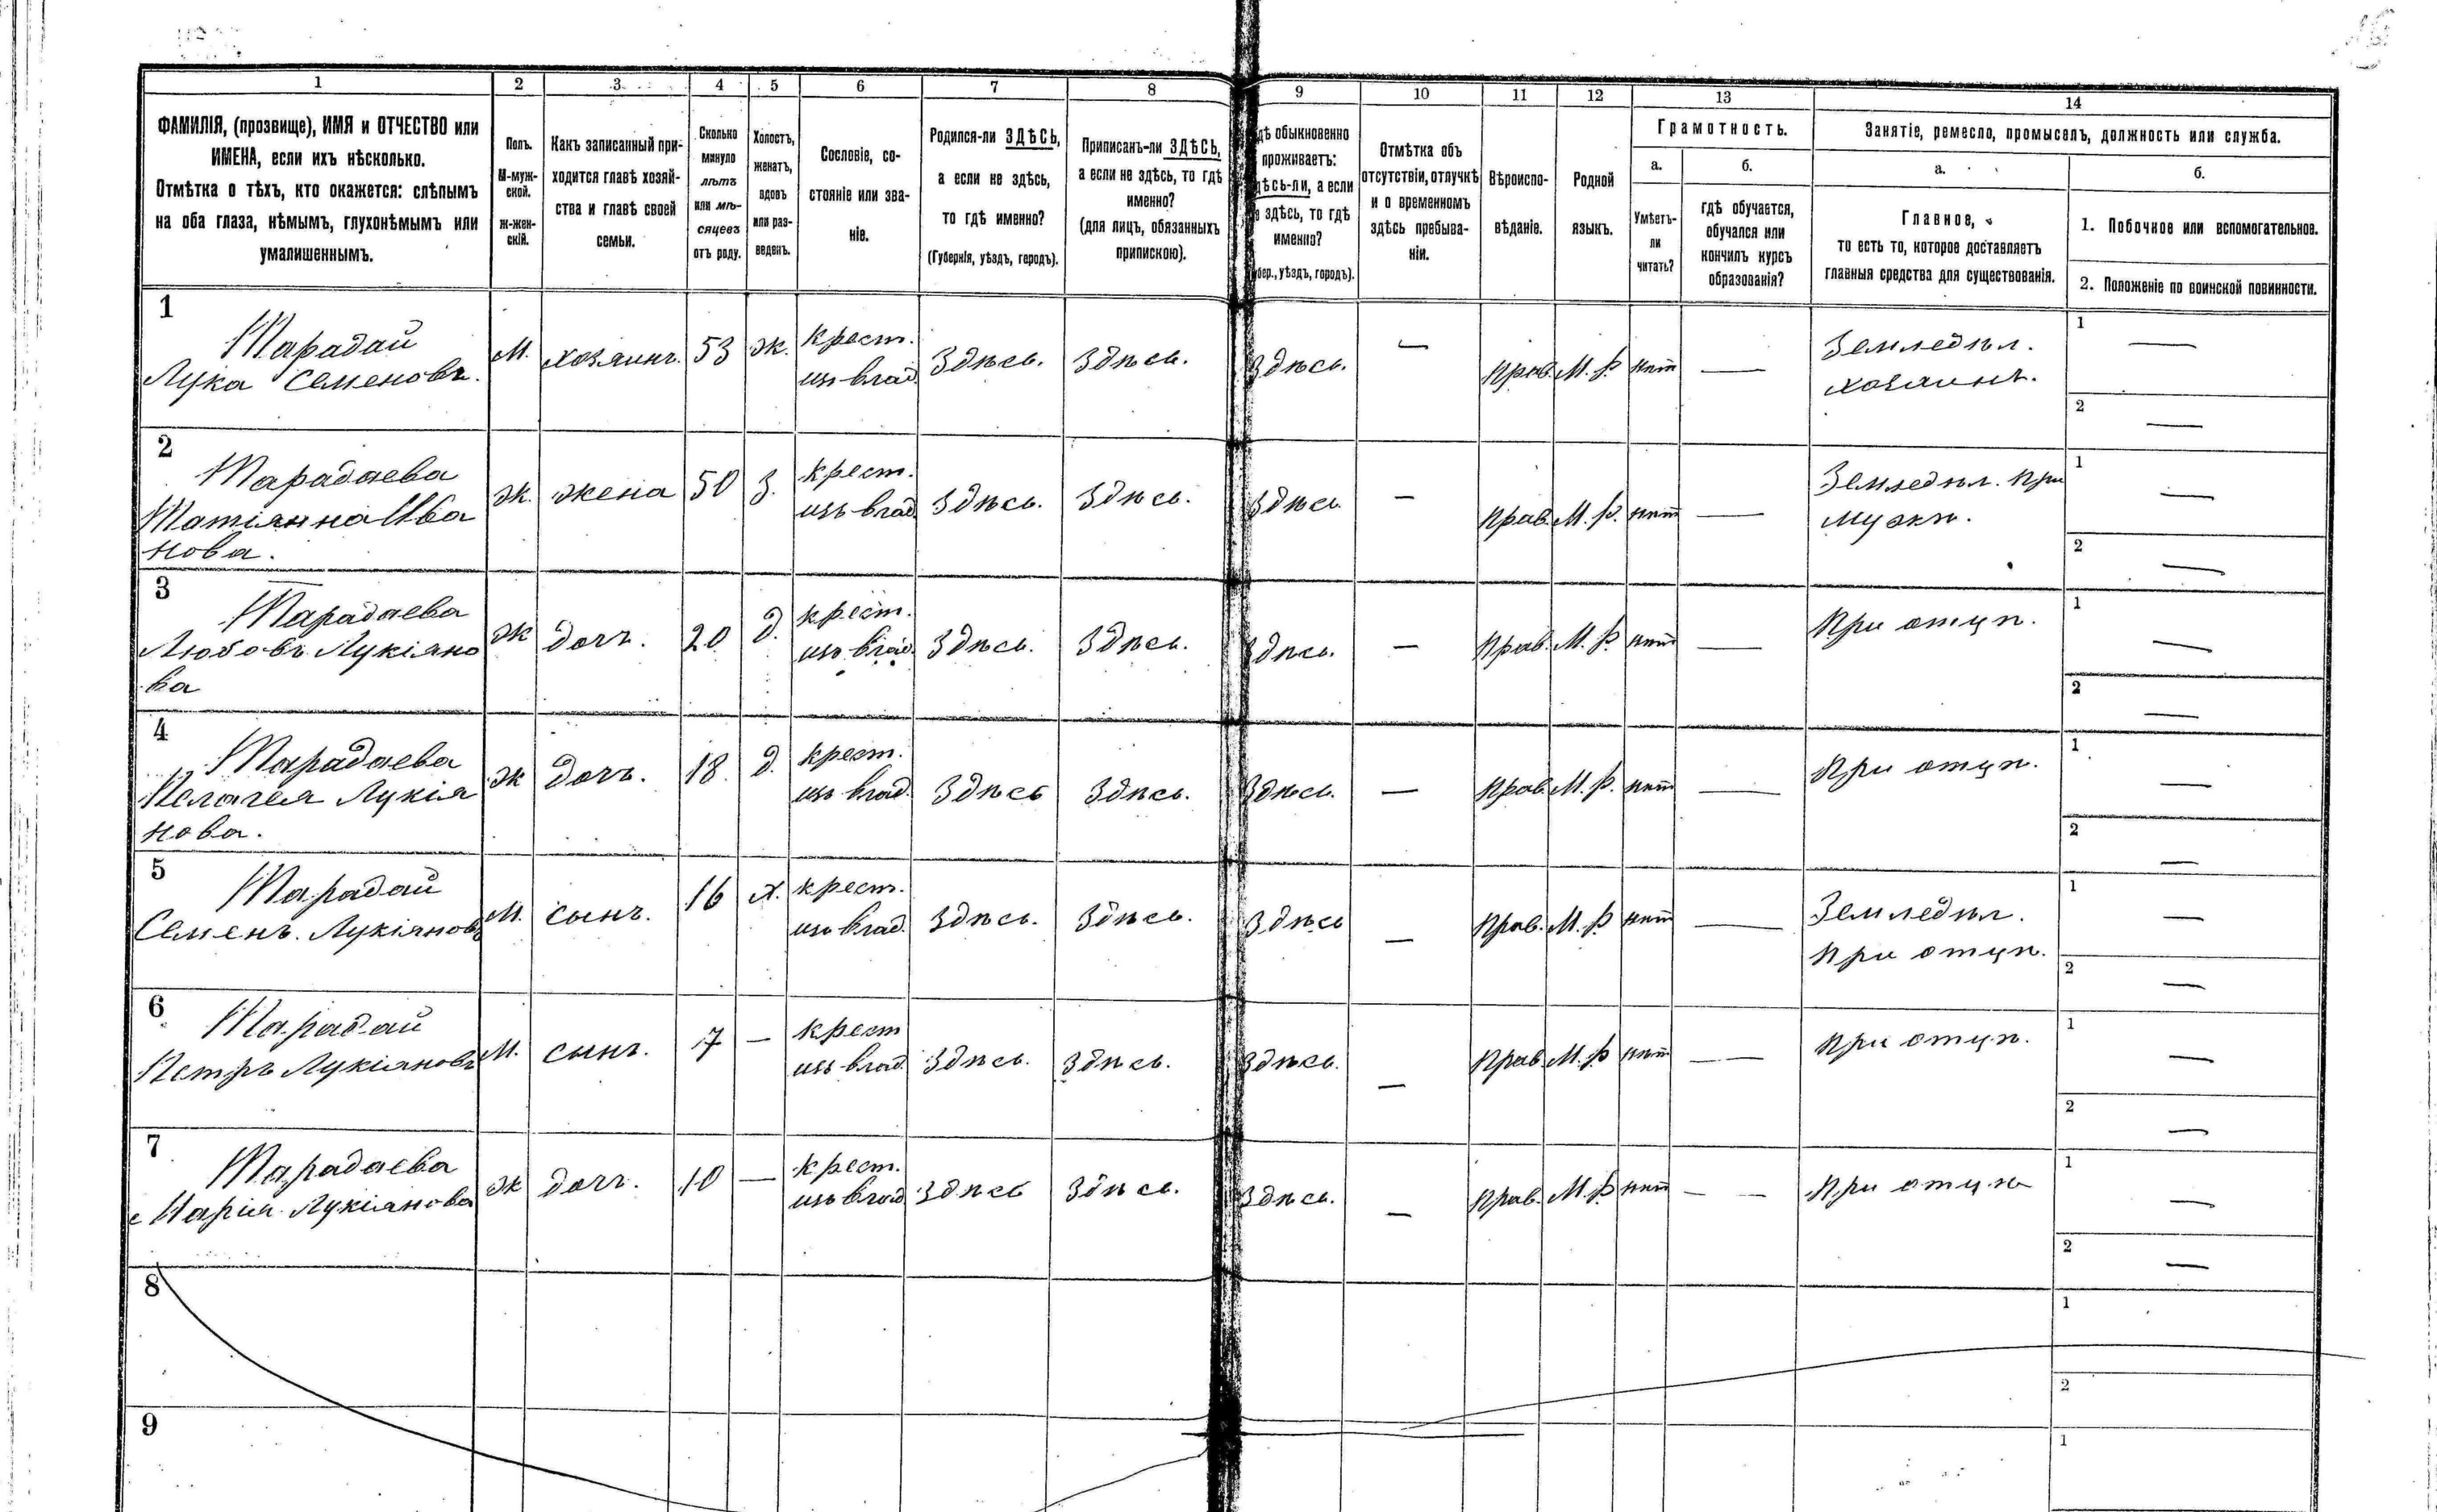 1 2 3 4 5 6 7 8 9 10 11 12 13 14
ФАМИЛІЯ, (прозвище), ИМЯ и ОТЧЕСТВО или
ИМЕНА, если ихъ нѣсколько.
Отмѣтка о тѣхъ, кто окажется: слѣпымъ
на оба глаза, нѣмымъ, глухонѣмымъ или
умалишеннымъ.
Полъ.
М-муж-
ской.
Ж-жен-
скій.
Какъ записанный при-
ходится главѣ хозяй-
ства и главѣ своей
семьи.
Сколько
минуло
лѣтъ
или мѣ-
сяцевъ
отъ роду.
Холостъ,
женатъ,
вдовъ
или раз-
веденъ.
Сословіе, со-
стояніе или зва-
ніе.
Родился-ли ЗДѢСЬ,
а если не здѣсь,
то гдѣ именно?
(Губернія, уѣздъ, городъ).
Приписанъ-ли ЗДѢСЬ,
а если не здѣсь, то гдѣ
именно?
(для лицъ, обязанныхъ
припискою).
дѣ обыкновенно
проживаетъ:
дѣсь-ли, а если
е здѣсь, то гдѣ
именно?
убер., уѣздъ, городъ).
Отмѣтка объ
отсутствіи, отлучкѣ
и о временномъ
здѣсь пребыва-
ніи.
Вѣроиспо-
вѣданіе.
Родной
языкъ.
Грамотность.
а.
Умѣетъ-
ли
читать?
б.
гдѣ обучается,
обучался или
кончилъ курсъ
образованія?
Занятіе, ремесло, промыселъ, должность или служба.
а.
Главное,
то есть то, которое доставляетъ
главныя средства для существованія.
б.
1. Побочное или вспомогательное.
2. Положеніе по воинской повинности.
1
Тарадай
Лука Семеновъ.
М. хозяинъ. 53 ж. крест.
изъ влад. Здѣсь. Здѣсь. Здѣсь. — Прав. М. р. нѣт —
Земледѣл.
хозяинъ.
1 —
2 —
2
Тарадаева
Татіянна Ива
нова.
ж. жена 50 З. крест.
изъ влад. Здѣсь. Здѣсь. Здѣсь. — Прав. М. р. нѣт —
Земледѣл. при
мужѣ.
1 —
2 —
3
Тарадаева
Любовь Лукіяно
ва
ж дочь. 20 д. крест.
изъ влад. Здѣсь. Здѣсь. Здѣсь. — Прав. М. р. нѣт —
При отцѣ.
1 —
2 —
4
Тарадаева
Пелагея Лукія
нова.
ж дочь. 18. д. крест.
изъ влад. Здѣсь Здѣсь. Здѣсь. — Прав. М. р. нѣт —
При отцѣ.
1 —
2 —
5
Тарадай
Семенъ. Лукіяновъ
М. сынъ. 16 х. крест.
изъ влад. Здѣсь. Здѣсь. Здѣсь — Прав. М. р нѣт —
Земледѣл.
при отцѣ.
1 —
2 —
6
Тарадай
Петръ Лукіяновъ
М. сынъ. 7 — крест
изъ влад. Здѣсь. Здѣсь. Здѣсь. — Прав. М. р нѣт — —
при отцѣ.
1 —
2 —
7
Тарадаева
Марія Лукіянова
ж дочь. 10 — крест.
изъ влад Здѣсь Здѣсь. Здѣсь. — Прав. М. р нѣт — —
при отцѣ
1 —
2 —
8
1
2
9
1